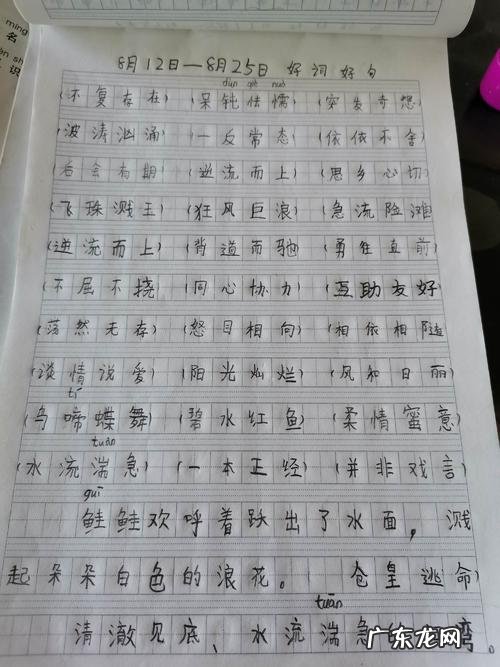 ming
名
识
8月12日—8月25日 好词好句
dùn qiè nuò
(不复存在) (呆钝怯懦) (突发奇想)
(波涛汹涌) (一反常态) (依依不舍)
(后会有期) (逆流而上) (思乡心切)
(飞珠溅玉) (狂风巨浪) (急流险滩)
(逆流而上) (背道而驰) (勇往直前)
(不屈不挠) (同心协力) (互助友好)
(荡然无存) (怒目相向) (相依相随)
(谈情说爱) (阳光灿烂) (风和日丽)
tí
(鸟啼蝶舞) (碧水红鱼) (柔情蜜意)
tuān
(水流湍急) (一本正经) (并非戏言)
guī
鲑鲑欢呼着跃出了水面，溅
起朵朵白色的浪花。 仓皇逃命
tuān
清澈见底、水流湍急 弯
广东龙网